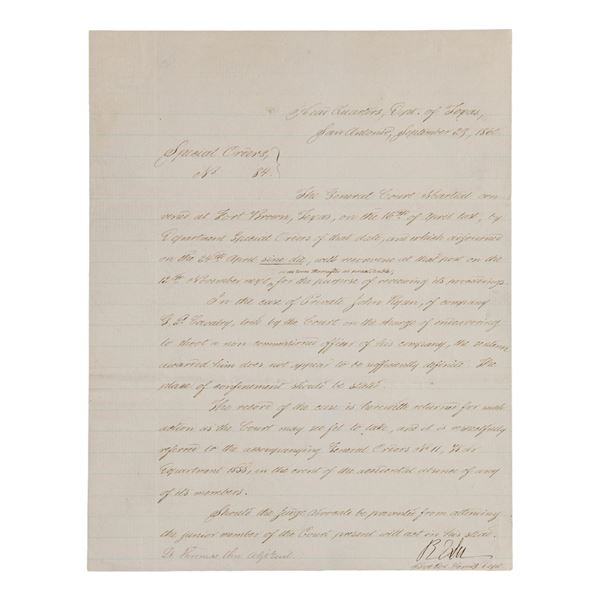 Head Quarters, Dpt. of Texas,
San Antonio, September 29, 1860
Special Orders,
No 84.
The General Court Martial con-
vened at Fort Brown, Texas, on the 16th of April last, by
Department Special Orders of that date, and which adjourned
on the 24th April sine die, will reconvene at that post on the
or as soon thereafter as practicable,
12th November next, for the purpose of reviewing its proceedings
In the case of Private John Ryan, of company
Cavalry, tried by the Court on the charge of endeavoring
to shoot a non commissioned officer of his company, the sentence
awarded him does not appear to be sufficiently definite. The
place of confinement should be stated.
The record of the case is herewith returned for such
action as the Court may see fit to take, and it is respectfully
referred to the accompanying General Orders No 11,
Department 1853, in the event of the accidental absence of any
of its members.
Should the Judge Advocate be prevented from attending
the junior member of the Court present will act in his stead.
R E Lee